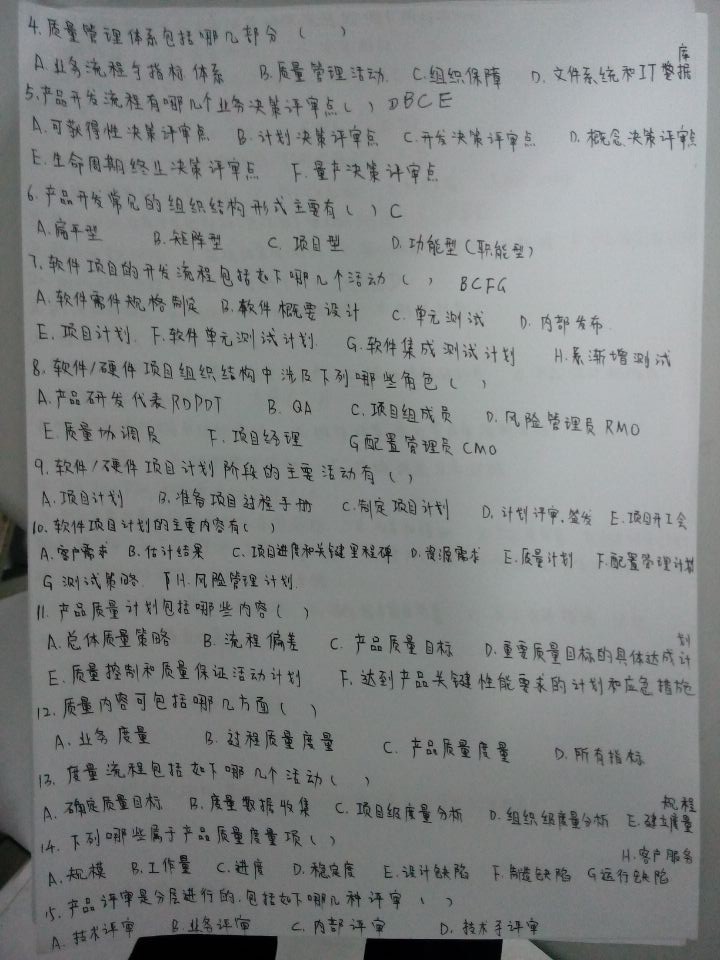 4.质量管理体系包括哪几部分（ ）
A.业务流程与指标体系 B.质量管理活动 C.组织保障 D.文件系统和IT数据库
5.产品开发流程有哪几个业务决策评审点（ ）DBCE
A.可获得性决策评审点 B.计划决策评审点 C.开发决策评审点 D.概念决策评审点
E.生命周期终止决策评审点 F.量产决策评审点
6.产品开发常见的组织结构形式主要有（ ）C
A.扁平型 B.矩阵型 C.项目型 D.功能型（职能型）
7.软件项目的开发流程包括如下哪几个活动（ ） BCFG
A.软件需件规格制定 B.软件概要设计 C.单元测试 D.内部发布.
E.项目计划. F.软件单元测试计划. G.软件集成测试计划 H.系渐增测试
8.软件/硬件项目组织结构中涉及下列哪些角色（ ）
A.产品研发代表RDPDT B.QA C.项目组成员 D.风险管理员RMO
E.质量协调员 F.项目经理 G配置管理员CMO
9.软件/硬件项目计划阶段的主要活动有（ ）
A.项目计划 B.准备项目过程手册 C.制定项目计划 D.计划评审.签发 E.项目开工会
10.软件项目计划的主要内容有（ ）
A.客户需求 B.估计结果 C.项目进度和关键里程碑 D.资源需求 E.质量计划 F.配置管理计划
G测试策略. H.风险管理计划.
11.产品质量计划包括哪些内容（ ）
A.总体质量策略 B.流程偏差 C.产品质量目标 D.重要质量目标的具体达成计划
E.质量控制和质量保证活动计划 F.达到产品关键性能要求的计划和应急措施
12.质量内容可包括哪几方面（ ）
A.业务度量 B.过程质量度量 C.产品质量度量 D.所有指标
13.度量流程包括如下哪几个活动（ ）
A.确定质量目标 B.度量数据收集 C.项目级度量分析 D.组织级度量分析 E.建立度量规程
14.下列哪些属于产品质量度量项（ ）
A.规模 B.工作量 C.进度 D.稳定度 E.设计缺陷 F.制造缺陷 G运行缺陷 H.客户服务
15.产品评审是分层进行的.包括如下哪几种评审（ ）
A.技术评审 B.业务评审 C.内部评审 D.技术子评审